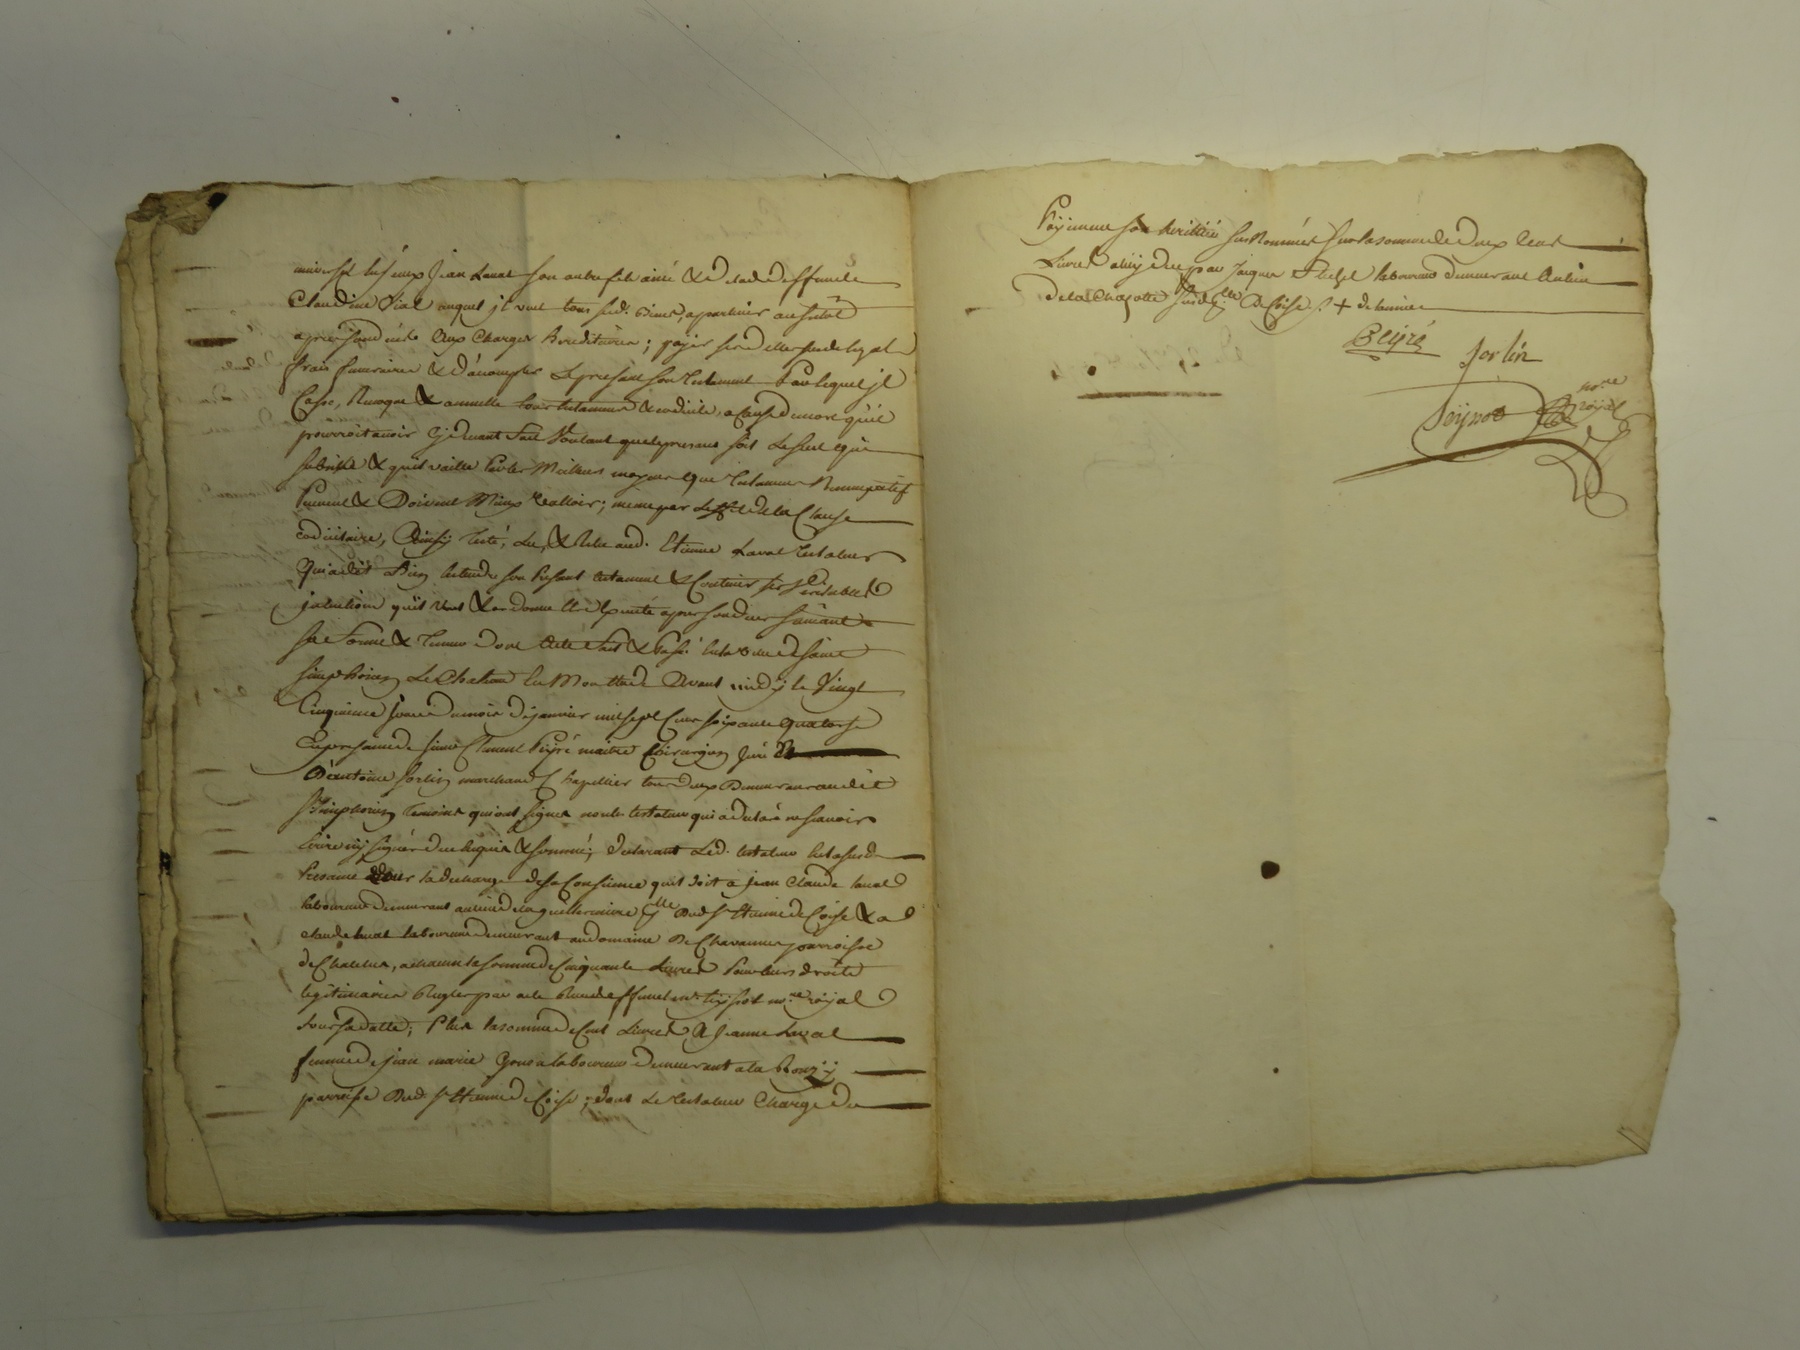 universel led. sieur Jean Laval son autre fils ainé & de lad. deffunte
Claudine Vial auquel il veut tous sesd. biens appartenir aussitôt
apres son décès aux charges hereditaires; payer ses dettes sesd. legats
frais funeraires & d'accomplir le present son testament par lequel il
casse, revoque & annulle tous testaments & codicile, a cause de mort qu'il
pourroit avoir cy devant fait voulant que le present soit le seul qui
subsiste & qu'il vaille par les meilleurs moyens que testament nuncupatif
peuvent & doivent mieux valloir; meme par l'effet de la clause
codicilaire, Ainsy testé, lu, & relu aud. Etienne Laval testateur
qui a dit bien entendre son present testament & contenir ses veritables
intentions qu'il veut & ordonne etre executé apres son deces suivant
sa forme & teneur dont acte fait & passé en la ville de saint
simphorien le chateau en étude avant midy le vingt
cinquieme jour du mois de janvier mil sept cent soixante quatorse
En presence de sieur Clement Peyré maitre chirurgien juré
& d'antoine Jorlin marchand chapellier tous deux demeurant audit
St simphorien temoins qui ont signé non le testateur qui a declaré ne scavoir
ecrire ny signer de ce enquis & sommé; declarant led. testateur en lasusd.
presence pour la decharge de sa conscience qu'il doit a jean Claude laval
laboureur demeurant au lieu de la guillermiere psse dud. St Etienne de Coise & a
claude laval laboureur demeurant au domaine de Chavannes parroisse
de Chatelus, a chacun la somme de cinquante livres pour leurs droits
legitimaires reglés par acte reçu deffunt me. teyssot nore. royal
sous sa datte; plus la somme de cent livres à jeanne Laval
femme de jean marie laboureur demeurant a la
parroisse dud. St Etienne de Coise; dont le testateur charge du
Payement son heritier sus nommé sur la somme de deux cent
livres a luy deue par Jaques laboureur demeurant au lieu
de la Chazotte susd. psse de Coise ./. + de laniée
Peÿré
Jorlin
nore
royal